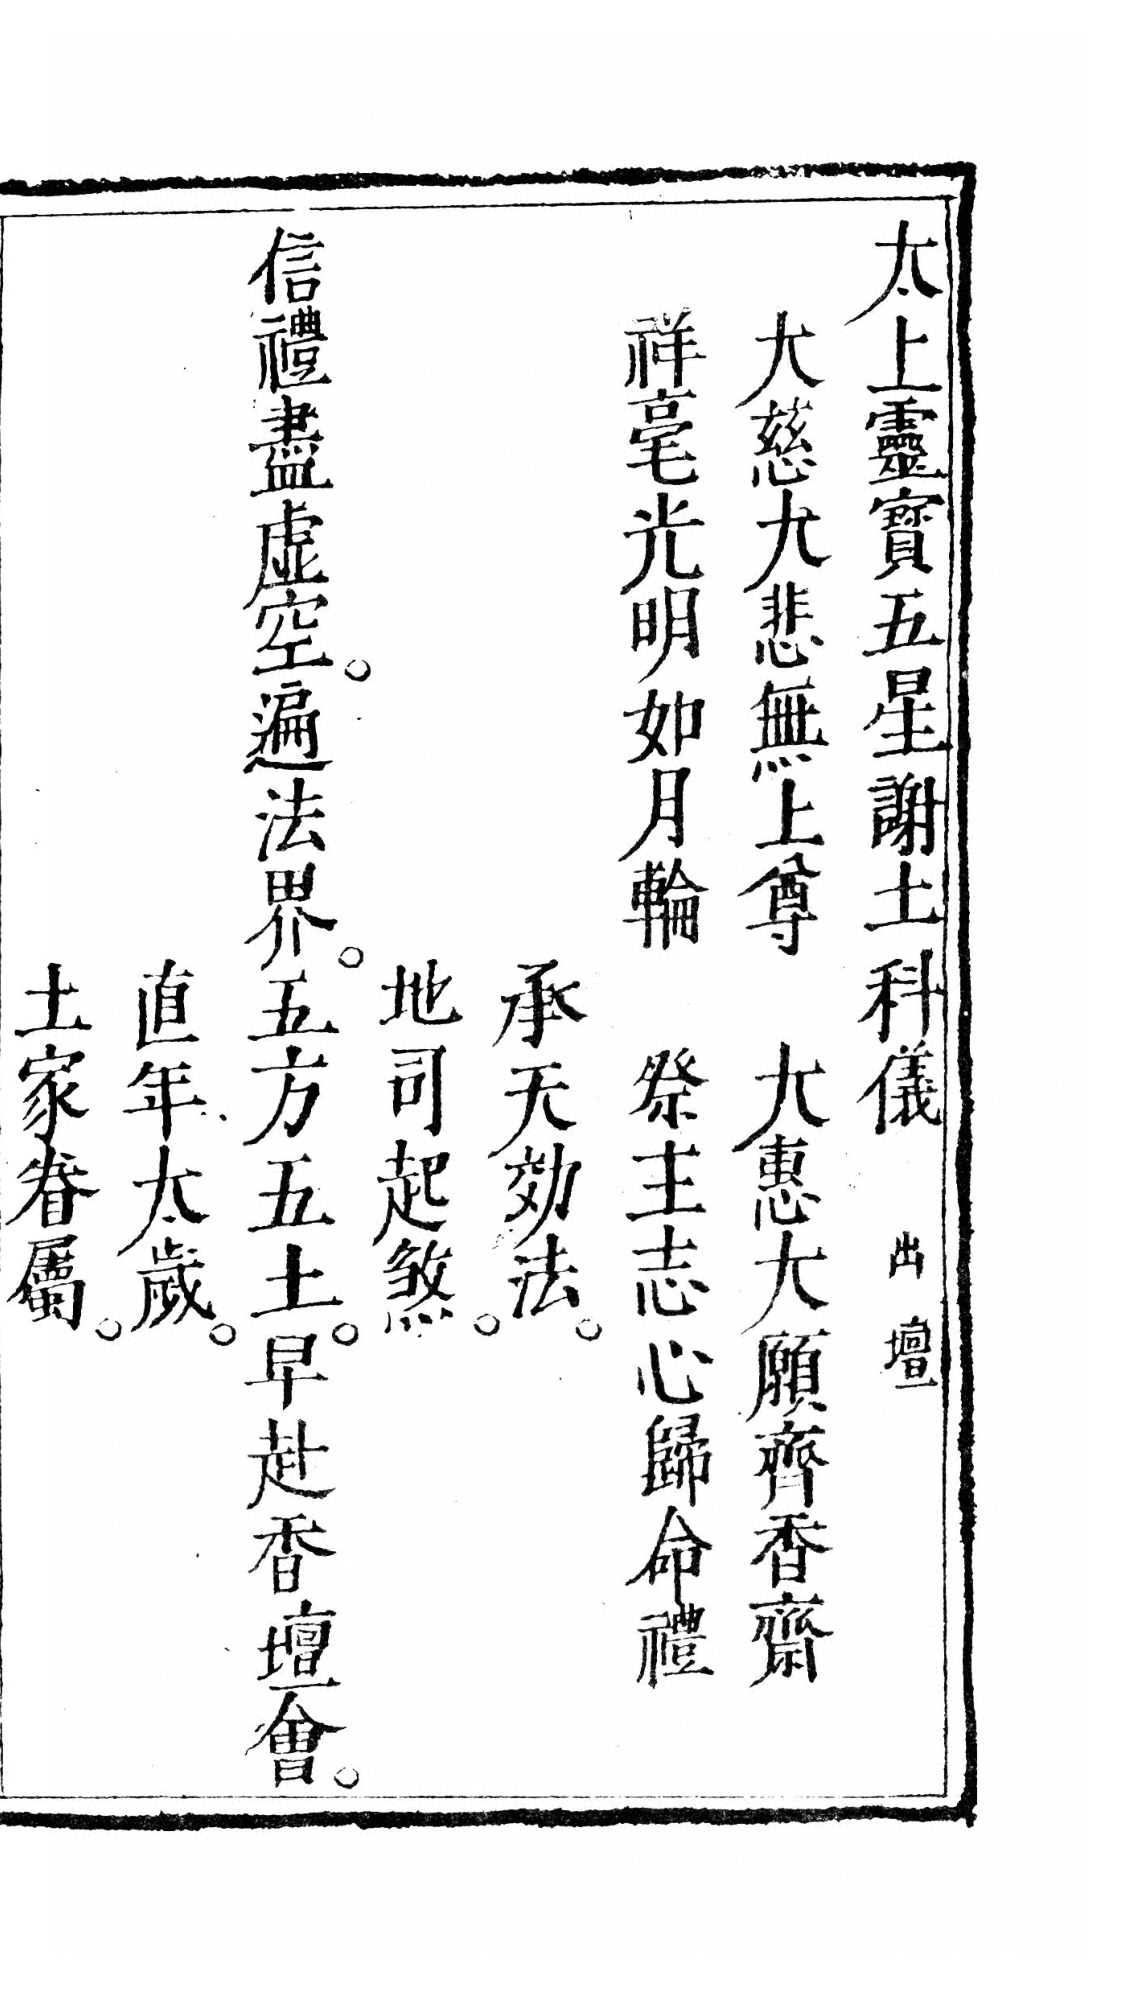 太上靈寶五星謝土科儀 出壇
大慈大悲無上尊 大惠大願齊香齋
祥毫光明如月輪 祭主志心歸命禮
承天効法。
地司起煞。
信禮盡虛空。遍法界。五方五土。早赴香壇會。
直年太歲。
土家眷屬。